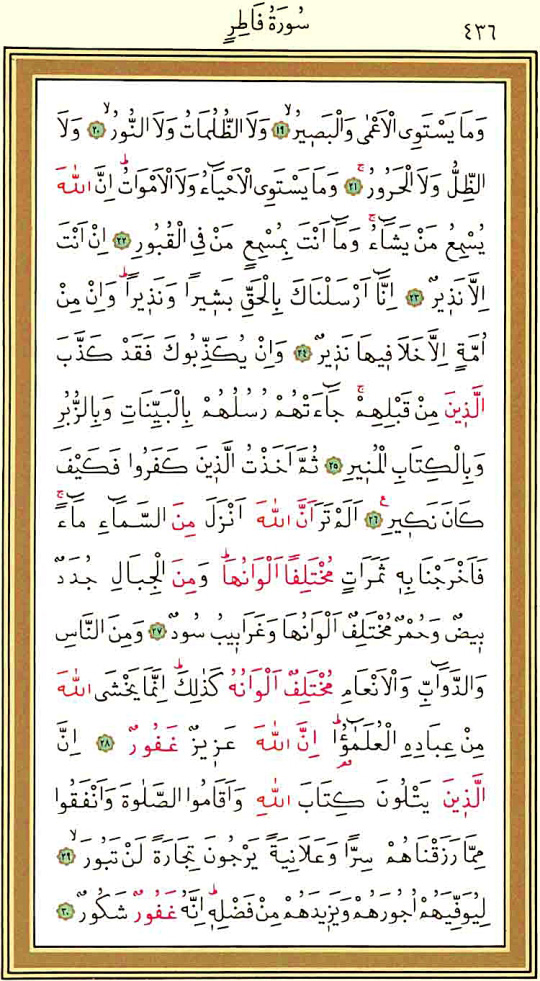 سُورَةُ فَاطِرٍ ٤٣٦
وَمَا يَسْتَوِي الْاَعْمٰى وَالْبَص۪يرُۙ ﴿١٩﴾ وَلَا الظُّلُمَاتُ وَلَا النُّورُۙ ﴿٢٠﴾ وَلَا
الظِّلُّ وَلَا الْحَرُورُۚ ﴿٢١﴾ وَمَا يَسْتَوِي الْاَحْيَٓاءُ وَلَا الْاَمْوَاتُۜ اِنَّ اللّٰهَ
يُسْمِعُ مَنْ يَشَٓاءُۚ وَمَٓا اَنْتَ بِمُسْمِعٍ مَنْ فِي الْقُبُورِ ﴿٢٢﴾ اِنْ اَنْتَ
اِلَّا نَذ۪يرٌ ﴿٢٣﴾ اِنَّٓا اَرْسَلْنَاكَ بِالْحَقِّ بَش۪يرًا وَنَذ۪يرًاۜ وَاِنْ مِنْ
اُمَّةٍ اِلَّا خَلَا ف۪يهَا نَذ۪يرٌ ﴿٢٤﴾ وَاِنْ يُكَذِّبُوكَ فَقَدْ كَذَّبَ
الَّذ۪ينَ مِنْ قَبْلِهِمْۚ جَٓاءَتْهُمْ رُسُلُهُمْ بِالْبَيِّنَاتِ وَبِالزُّبُرِ
وَبِالْكِتَابِ الْمُن۪يرِ ﴿٢٥﴾ ثُمَّ اَخَذْتُ الَّذ۪ينَ كَفَرُوا فَكَيْفَ
كَانَ نَك۪يرِ۟ ﴿٢٦﴾ اَلَمْ تَرَ اَنَّ اللّٰهَ اَنْزَلَ مِنَ السَّمَٓاءِ مَٓاءًۚ
فَاَخْرَجْنَا بِه۪ ثَمَرَاتٍ مُخْتَلِفًا اَلْوَانُهَاۜ وَمِنَ الْجِبَالِ جُدَدٌ
ب۪يضٌ وَحُمْرٌ مُخْتَلِفٌ اَلْوَانُهَا وَغَرَاب۪يبُ سُودٌ ﴿٢٧﴾ وَمِنَ النَّاسِ
وَالدَّوَٓابِّ وَالْاَنْعَامِ مُخْتَلِفٌ اَلْوَانُهُ كَذٰلِكَۜ اِنَّمَا يَخْشَى اللّٰهَ
مِنْ عِبَادِهِ الْعُلَمٰٓؤُ۬اۜ اِنَّ اللّٰهَ عَز۪يزٌ غَفُورٌ ﴿٢٨﴾ اِنَّ
الَّذ۪ينَ يَتْلُونَ كِتَابَ اللّٰهِ وَاَقَامُوا الصَّلٰوةَ وَاَنْفَقُوا
مِمَّا رَزَقْنَاهُمْ سِرًّا وَعَلَانِيَةً يَرْجُونَ تِجَارَةً لَنْ تَبُورَۙ ﴿٢٩﴾
لِيُوَفِّيَهُمْ اُجُورَهُمْ وَيَز۪يدَهُمْ مِنْ فَضْلِه۪ۜ اِنَّهُ غَفُورٌ شَكُورٌ ﴿٣٠﴾